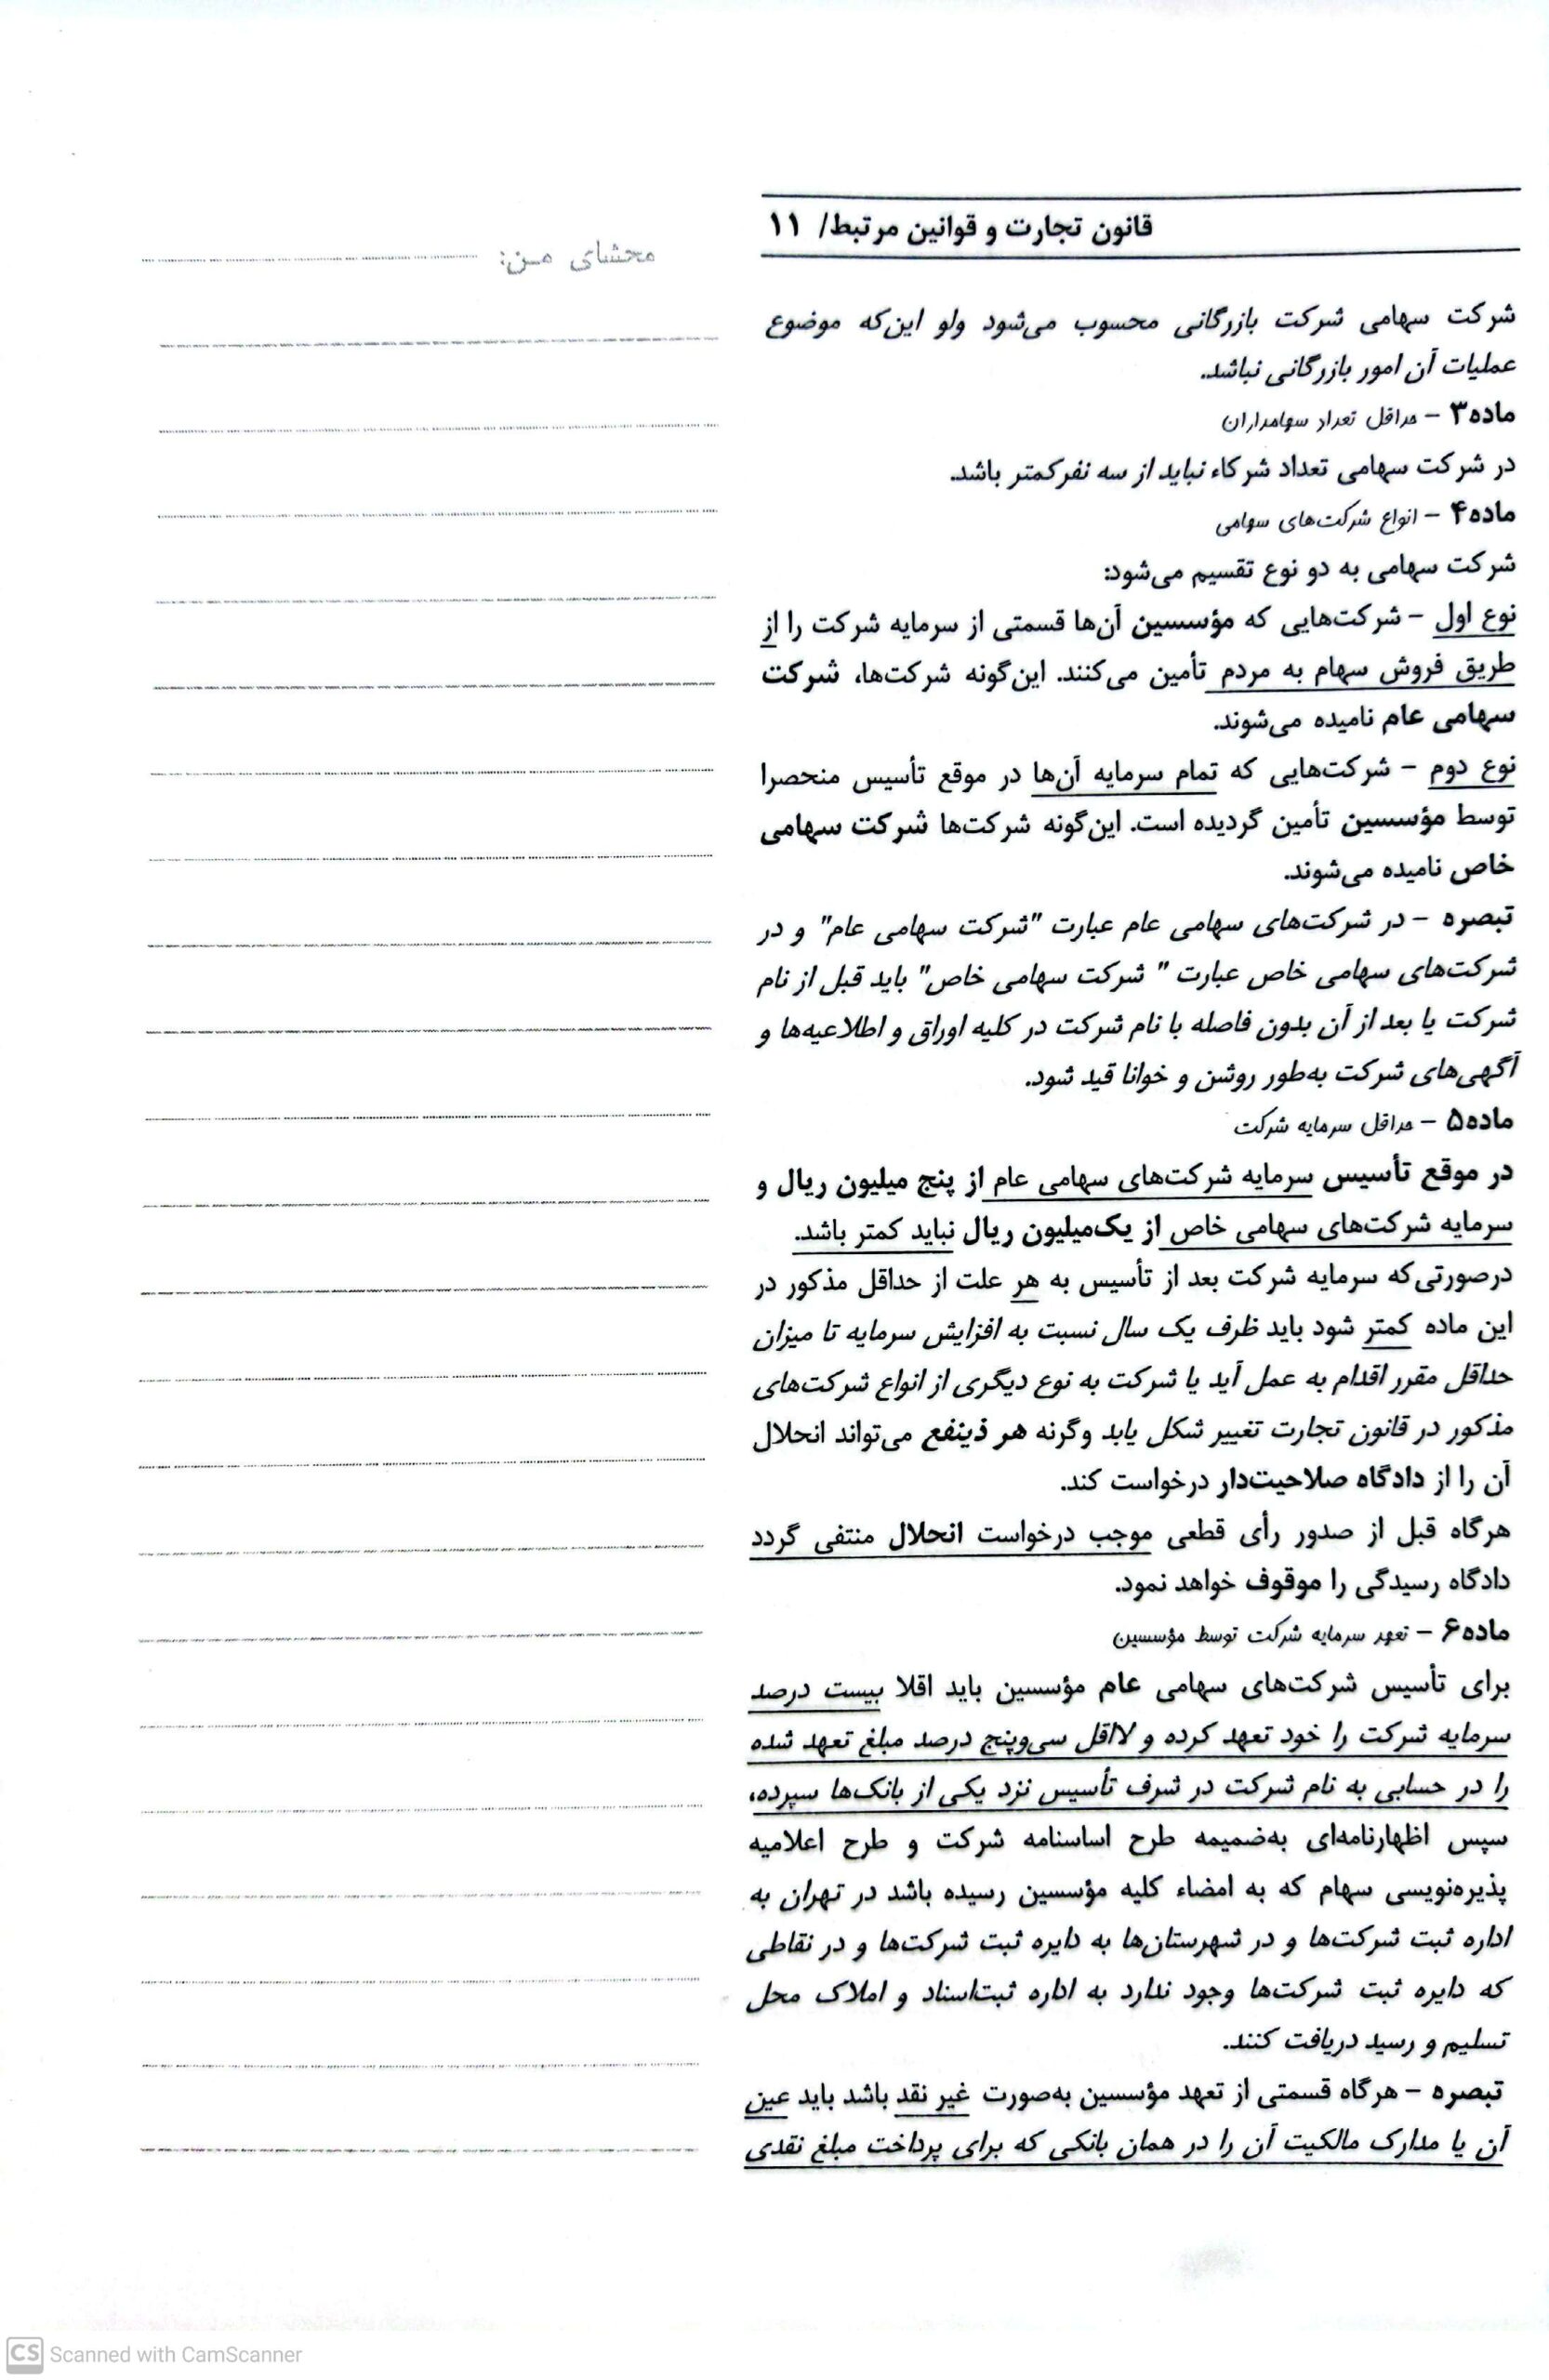 قانون تجارت و قوانین مرتبط/ ۱۱
محشای من:
شرکت سهامی شرکت بازرگانی محسوب می‌شود ولو این‌که موضوع
عملیات آن امور بازرگانی نباشد.
ماده۳ – حداقل تعداد سهامداران
در شرکت سهامی تعداد شرکاء نباید از سه نفر کمتر باشد.
ماده۴ – انواع شرکت‌های سهامی
شرکت سهامی به دو نوع تقسیم می‌شود:
نوع اول – شرکت‌هایی که مؤسسین آن‌ها قسمتی از سرمایه شرکت را از
طریق فروش سهام به مردم تأمین می‌کنند. این‌گونه شرکت‌ها، شرکت
سهامی عام نامیده می‌شوند.
نوع دوم – شرکت‌هایی که تمام سرمایه آن‌ها در موقع تأسیس منحصرا
توسط مؤسسین تأمین گردیده است. این‌گونه شرکت‌ها شرکت سهامی
خاص نامیده می‌شوند.
تبصره – در شرکت‌های سهامی عام عبارت "شرکت سهامی عام" و در
شرکت‌های سهامی خاص عبارت " شرکت سهامی خاص" باید قبل از نام
شرکت یا بعد از آن بدون فاصله با نام شرکت در کلیه اوراق و اطلاعیه‌ها و
آگهی‌های شرکت به‌طور روشن و خوانا قید شود.
ماده۵ – حداقل سرمایه شرکت
در موقع تأسیس سرمایه شرکت‌های سهامی عام از پنج میلیون ریال و
سرمایه شرکت‌های سهامی خاص از یک‌میلیون ریال نباید کمتر باشد.
درصورتی‌که سرمایه شرکت بعد از تأسیس به هر علت از حداقل مذکور در
این ماده کمتر شود باید ظرف یک سال نسبت به افزایش سرمایه تا میزان
حداقل مقرر اقدام به عمل آید یا شرکت به نوع دیگری از انواع شرکت‌های
مذکور در قانون تجارت تغییر شکل یابد وگرنه هر ذینفع می‌تواند انحلال
آن را از دادگاه صلاحیت‌دار درخواست کند.
هرگاه قبل از صدور رأی قطعی موجب درخواست انحلال منتفی گردد
دادگاه رسیدگی را موقوف خواهد نمود.
ماده۶ – تعهد سرمایه شرکت توسط مؤسسین
برای تأسیس شرکت‌های سهامی عام مؤسسین باید اقلا بیست درصد
سرمایه شرکت را خود تعهد کرده و لااقل سی‌وپنج درصد مبلغ تعهد شده
را در حسابی به نام شرکت در شرف تأسیس نزد یکی از بانک‌ها سپرده،
سپس اظهارنامه‌ای به‌ضمیمه طرح اساسنامه شرکت و طرح اعلامیه
پذیره‌نویسی سهام که به امضاء کلیه مؤسسین رسیده باشد در تهران به
اداره ثبت شرکت‌ها و در شهرستان‌ها به دایره ثبت شرکت‌ها و در نقاطی
که دایره ثبت شرکت‌ها وجود ندارد به اداره ثبت‌اسناد و املاک محل
تسلیم و رسید دریافت کنند.
تبصره – هرگاه قسمتی از تعهد مؤسسین به‌صورت غیر نقد باشد باید عین
آن یا مدارک مالکیت آن را در همان بانکی که برای پرداخت مبلغ نقدی
CS Scanned with CamScanner